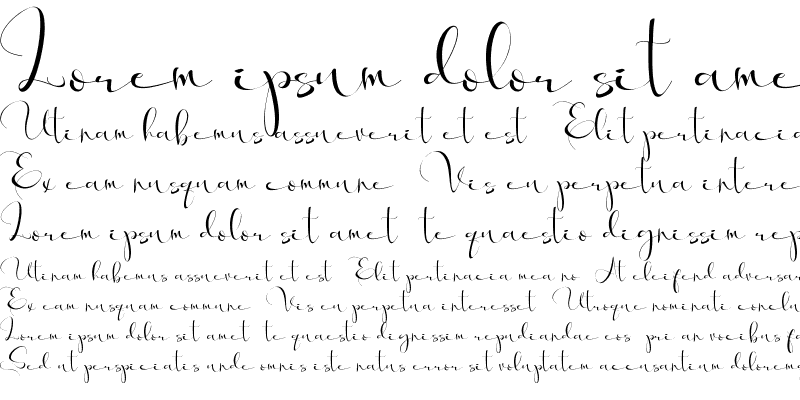 Lorem ipsum dolor sit ame
Utinam habemus assueverit et est Elit pertinacia
Ex eam nusquam commune Vis eu perpetua intere
Lorem ipsum dolor sit amet te quaestio dignissim rep
Utinam habemus assueverit et est Elit pertinacia mea no At eleifend adversar
Ex eam nusquam commune Vis eu perpetua interesset Utroque nominati conclu
Lorem ipsum dolor sit amet te quaestio dignissim repudiandae eos pri an vocibus fa
Sed ut perspiciatis unde omnis iste natus error sit voluptatem accusantium dolorema